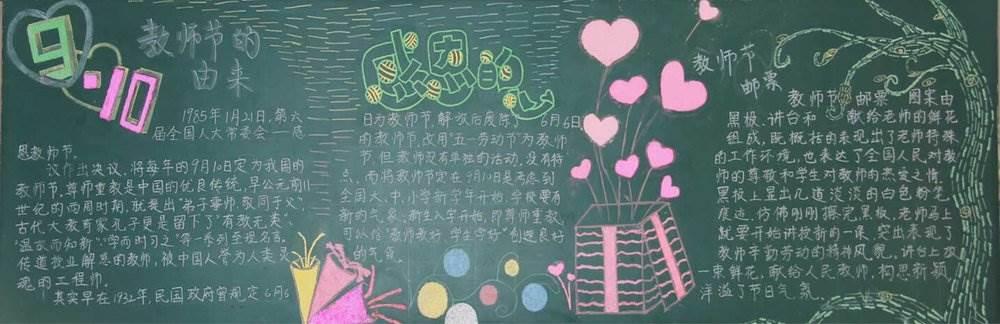 9.10
教师节的
由来
1985年1月21日,第六
届全国人大常委会一
恩教师节。
议作出决议,将每年的9月10日定为我国的
教师节,尊师重教是中国的优良传统,早公元前11
世纪的西周时期,就提出"弟子事师,敬同于父"
古代大教育家孔子更是留下了"有教无类"、
"温故而知新"、"学而时习之"等一系列至理名言。
传道授业解惑的教师,被中国人誉为人类灵
魂的工程师。
其实早在1932年,民国政府曾规定6月6
感恩的心
日为教师节,解放后废除了 6月6日
的教师节,改用"五一劳动节"为教师
节,但教师没有单独的活动,没有特
点,而将教师节定在9月10日是考虑到
全国大、中、小学新学年开始,学校要有
新的气象。新生入学开始,即尊师重教,
可以给"教师教好,学生学好"创造良好
的气氛
教师节
邮票
教师节 邮票 图案由
黑板、讲台和 献给老师的鲜花
组成,既概括的表现出了老师特殊
的工作环境,也表达了全国人民对教
师的尊敬和学生对教师的热爱之情。
黑板上显出几道淡淡的白色粉笔
痕迹,仿佛刚刚擦完黑板,老师马上
就要开始讲授新的一课,突出表现了
教师辛勤劳动的精神风貌。讲台上放
一束鲜花,献给人民教师,构思新颖,
洋溢了节日气氛。